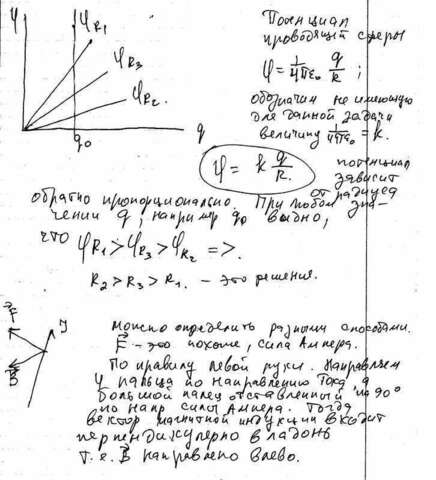 φ
φR1
φR3
φR2.
q0
q
Потенциал
проводящей сферы
φ = 1/4πε0 q/R ;
обозначим не имеющую
для данной задачи
величину 1/4πε0 = k.
φ = k q/R.
потенциал
зависит
от радиуса
обратно пропорционально. При любом зна-
чении q, например q0 видно,
что φR1 > φR3 > φR2 =>.
R2 > R3 > R1. – это решения.
F
B
I
можно определить разными способами.
F – это похоже, сила Ампера.
По правилу левой руки. Направляем
4 пальца по направлению тока, а
большой палец отставленный на 90°
по напр силы Ампера. Тогда
вектор магнитной индукции входит
перпендикулярно в ладонь
т.е. B направлено влево.